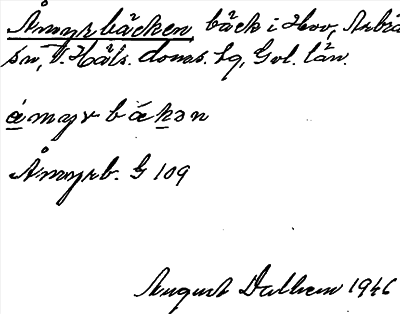 Åmyrbäcken, bäck i Hov, Arbrå
sn, V. Häls. doms. hg, Gvl. län.
åmyrbäkən
Åmyrb. G 109
August Dalhem 1946